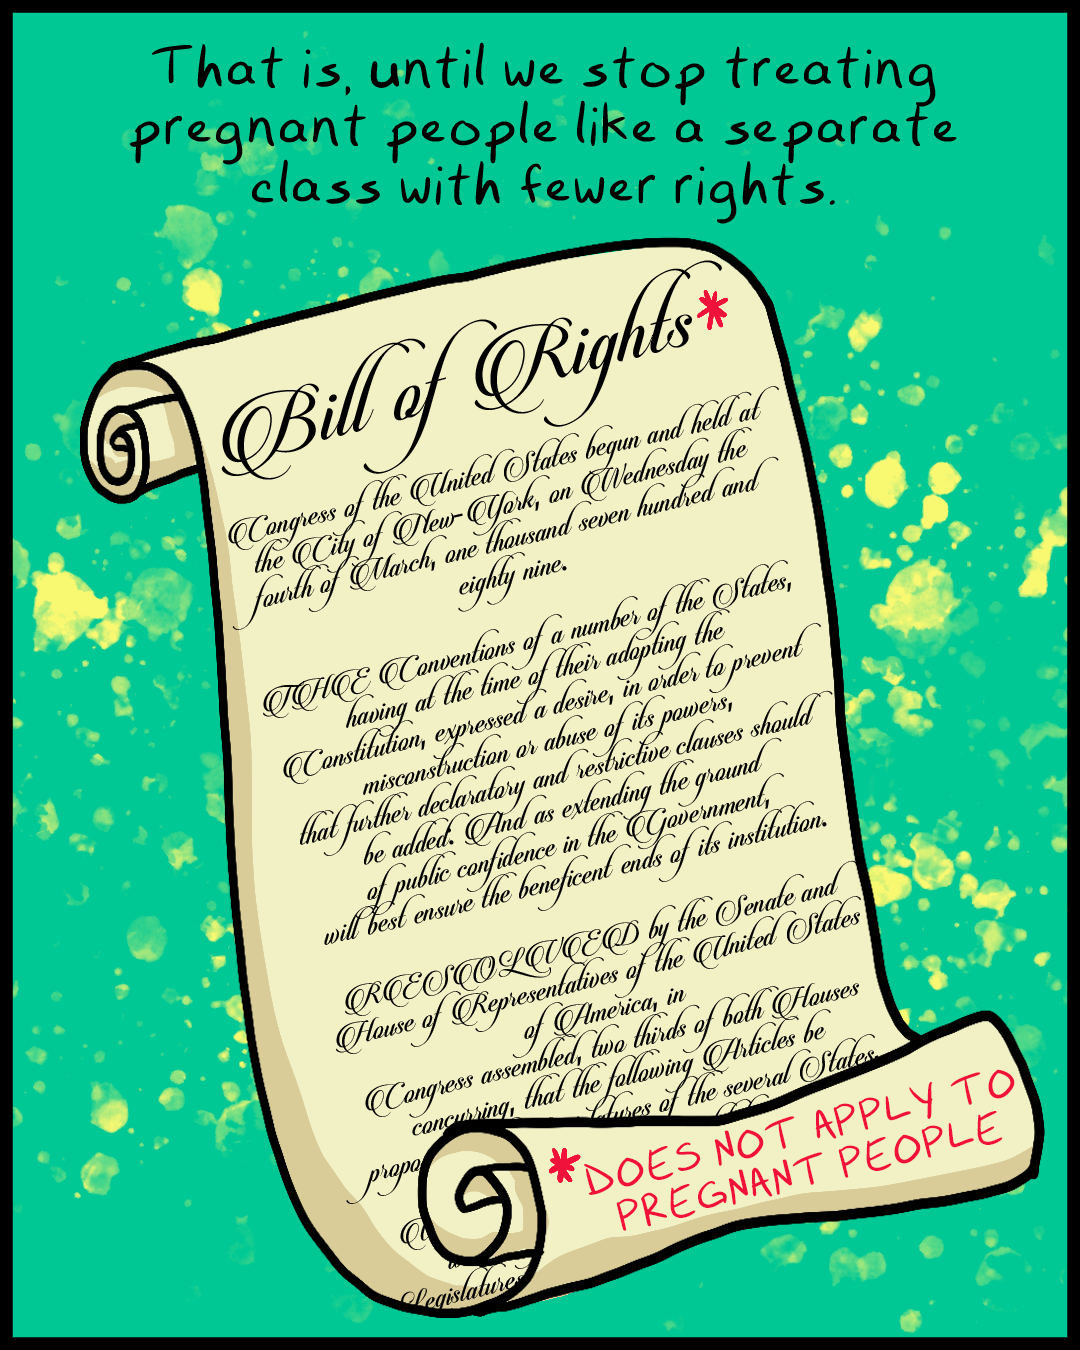 That is, until we stop treating
pregnant people like a separate
class with fewer rights.
Bill of Rights*
Congress of the United States begun and held at
the City of New-York, on Wednesday the
fourth of March, one thousand seven hundred and
eighty nine.
THE Conventions of a number of the States,
having at the time of their adopting the
Constitution, expressed a desire, in order to prevent
misconstruction or abuse of its powers,
that further declaratory and restrictive clauses should
be added: And as extending the ground
of public confidence in the Government,
will best ensure the beneficent ends of its institution.
RESOLVED by the Senate and
House of Representatives of the United States
of America, in
Congress assembled, two thirds of both Houses
concurring, that the following Articles be
of the several States
Legislatures
*DOES NOT APPLY TO
PREGNANT PEOPLE